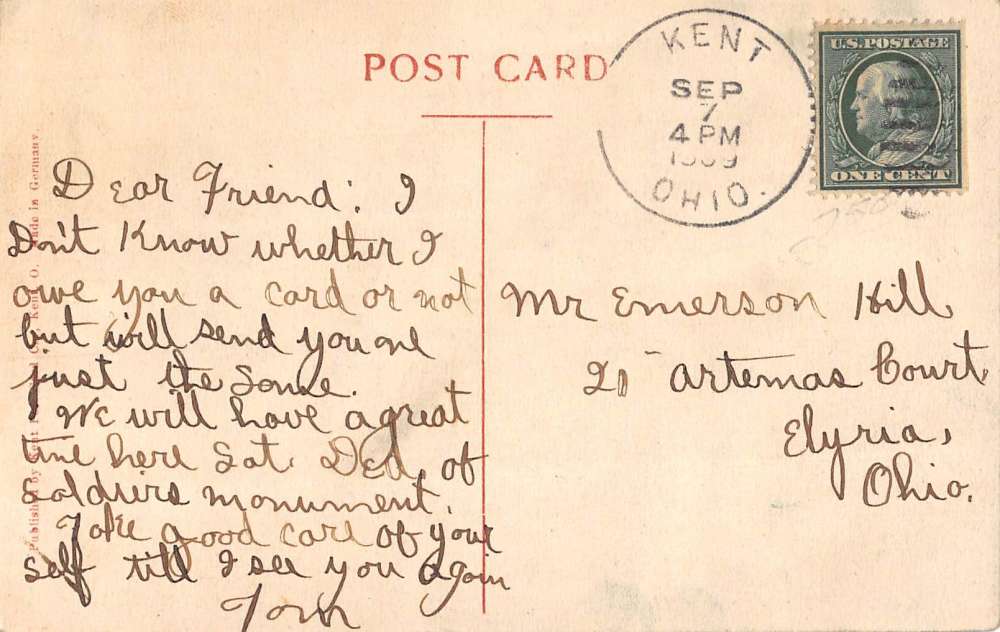 POST CARD
KENT
SEP
7
4 PM
1909
OHIO.
U.S. POSTAGE
ONE CENT
Dear Friend: I
Don't Know whether I
owe you a card or not
but will send you one
just the Same.
We will have a great
time here Sat. Ded. of
Soldiers monument.
Take good care of your
self till I see you again
Tom
Mr Emerson Hill
21 Artemas Court
Elyria,
Ohio.
Published by Kent O. Made in Germany.